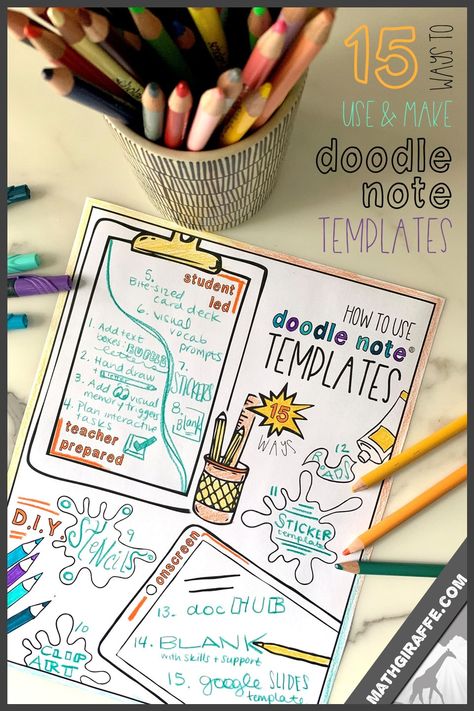 15 WAYS TO
USE & MAKE
doodle
note
TEMPLATES
HOW TO USE
doodle note®
TEMPLATES
15
WAYS
student
led
5.
Bite-sized
card deck
6. visual
vocab
prompts
7.
STICKERS
8.
Blank
1. Add text
boxes, BUBBLE
letters
2. Hand draw
3. Add visual
memory triggers
4. Plan interactive
tasks
teacher
prepared
12
ROADS
11
STICKER
template
D.I.Y.
9
STENCILS
10
CLIP
ART
onscreen
13. doc HUB
14. BLANK
with skills + support
15. google SLIDES
template
MATHGIRAFFE.COM